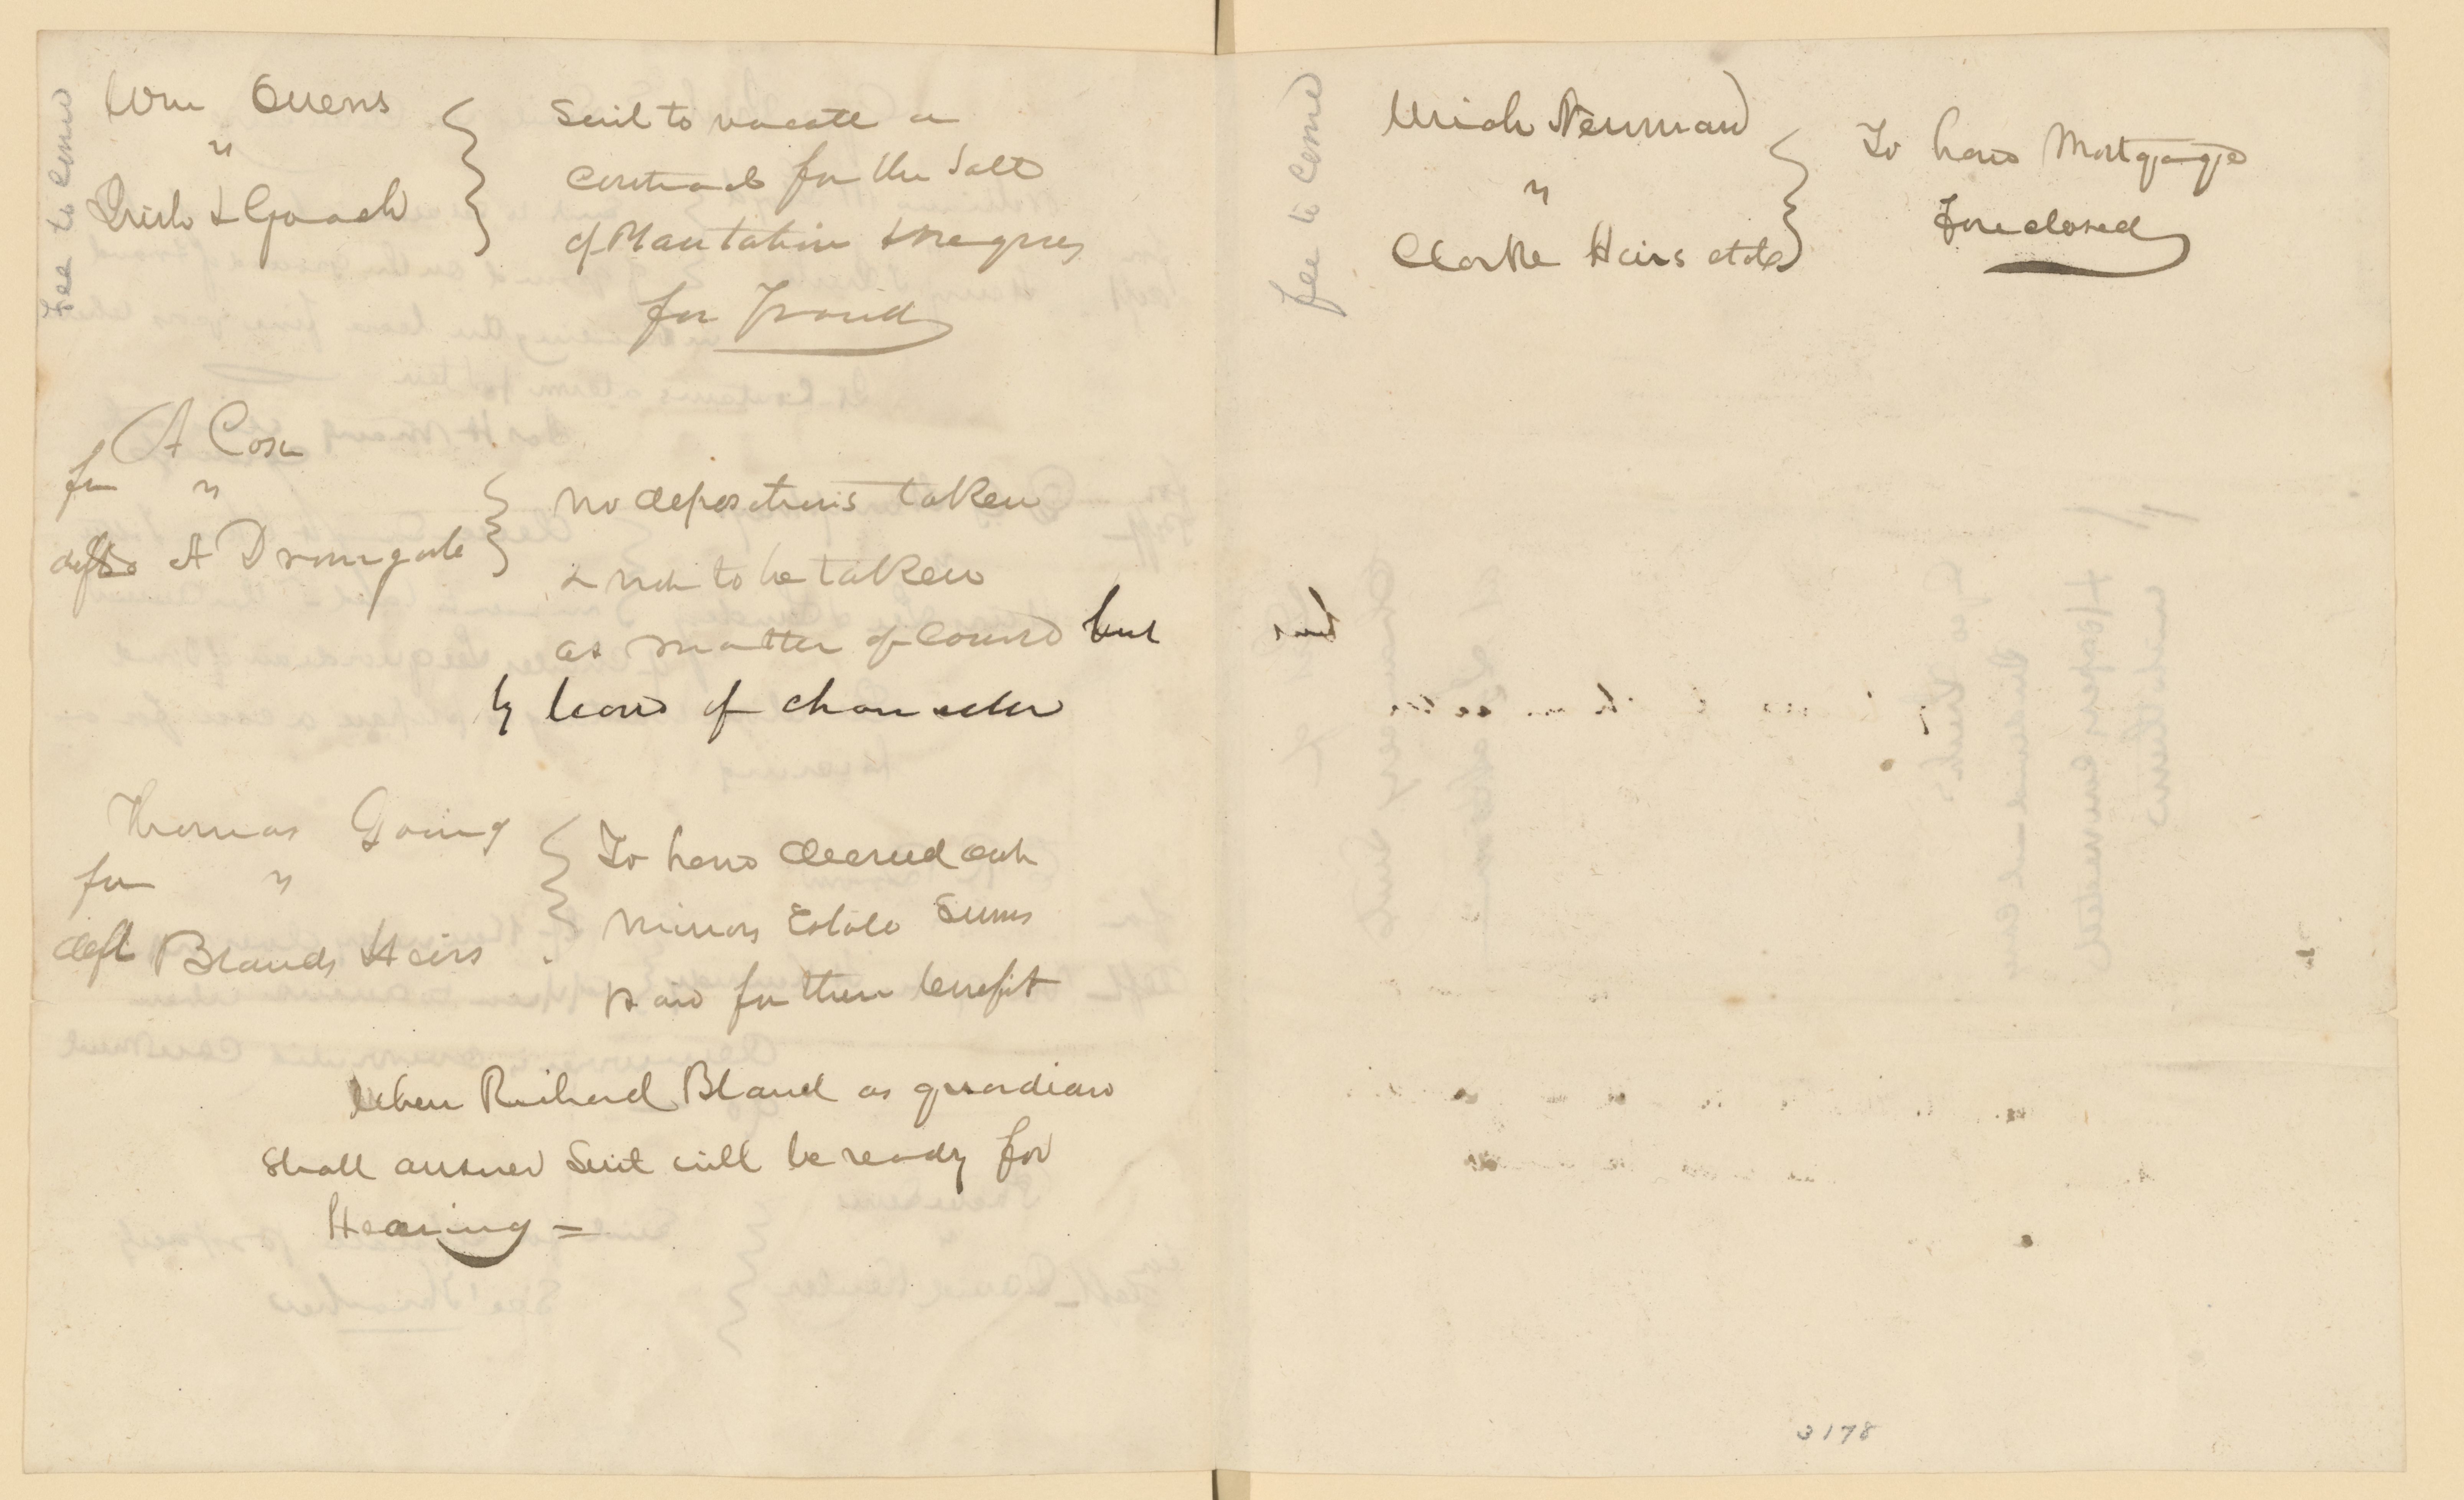 Fee to come
Wm Owens
"
Irish & Gooch
Suit to vacate a
contract for the Sale
of Plantation & negroes
for Fraud
A Cox
for "
defts A Dromgoole
no depositions taken
& not to be taken
as matter of course but
by leave of chancelor
Thomas Going
for "
deft Blands Heirs
To have decreed out
minors Estate Sums
paid for their benefit
When Richard Bland as guardian
shall answer Suit will be ready for
Hearing =
fee to come
Uriah Newman
"
Clarke Heirs et als
To have Mortgage
Foreclosed
3178